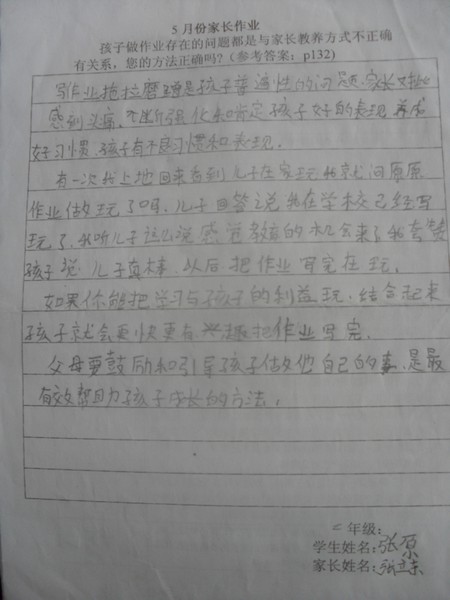 5月份家长作业
孩子做作业存在的问题都是与家长教养方式不正确
有关系，您的方法正确吗？(参考答案：p132)
写作业拖拉磨蹭是孩子普遍性的问题，家长对此
感到头痛，不断强化和肯定孩子好的表现，养成
好习惯，孩子有不良习惯和表现．
有一次我上地回来看到儿子在家玩我就问原原
作业做玩了吗，儿子回答说我在学校已经写
玩了，我听儿子这么说感觉教育的机会来了我夸赞
孩子说：儿子真棒，以后把作业写完在玩．
如果你能把学习与孩子的利益玩，结合起来
孩子就会更快更有兴趣把作业写完．
父母要鼓励和引导孩子做他自己的事，是最
有效帮助孩子成长的方法．
二年级：
学生姓名：张原
家长姓名：张